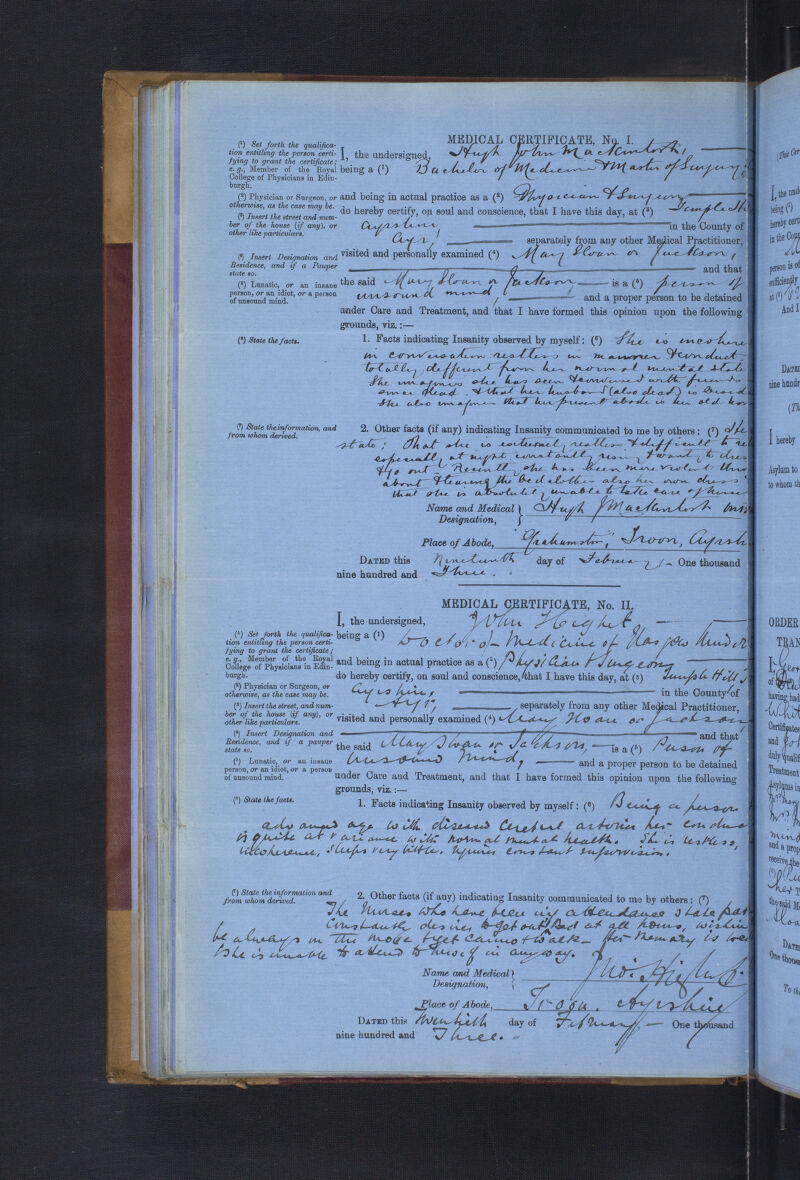 MEDICAL CERTIFICATE, No. I.
(¹) Set forth the qualifica-
tion entitling the person certi-
fying to grant the certificate;
e. g., Member of the Royal
College of Physicians in Edin-
burgh.
I, the undersigned, Hugh John Mackintosh,
being a (¹) Bachelor of Medicine & Master of Surgery
(²) Physician or Surgeon, or
otherwise, as the case may be.
and being in actual practice as a (²) Physician & Surgeon
(³) Insert the street and num-
ber of the house (if any), or
other like particulars.
do hereby certify, on soul and conscience, that I have this day, at (³) Temple
Ayrshire in the County of
Ayr, separately from any other Medical Practitioner,
(⁴) Insert Designation and
Residence, and if a Pauper
state so.
visited and personally examined (⁴) Mary Sloan or Jackson,
and that
(⁵) Lunatic, or an insane
person, or an idiot, or a person
of unsound mind.
the said Mary Sloan or Jackson is a (⁵) person of
unsound mind, and a proper person to be detained
under Care and Treatment, and that I have formed this opinion upon the following
grounds, viz. :—
(⁶) State the facts.
1. Facts indicating Insanity observed by myself: (⁶) She is
in conversation restless in manner & conduct
totally different from her normal mental state
She imagines she has seen & conversed with friends
since dead & that her husband (also dead) is
She also imagines that her present abode is her old
(⁷) State the information, and
from whom derived.
2. Other facts (if any) indicating Insanity communicated to me by others: (⁷)
state: That she is extremely restless & difficult to
especially at night constantly & to dress
& go out. Recently she has been more violent
about & tearing the bedclothes also her own dress
that she is absolutely unable to take care of
Name and Medical } Hugh J Mackintosh
Designation,
Place of Abode, Grahamston, Troon,
DATED this Nineteenth day of February — One thousand
nine hundred and Three.
MEDICAL CERTIFICATE, No. II.
I, the undersigned, John Highet
(¹) Set forth the qualifica-
tion entitling the person certi-
fying to grant the certificate;
e. g., Member of the Royal
College of Physicians in Edin-
burgh.
being a (¹) Doctor of Medicine of Glasgow
and being in actual practice as a (²) Physician & Surgeon
(²) Physician or Surgeon, or
otherwise, as the case may be.
do hereby certify, on soul and conscience, that I have this day, at (³) Temple Hill
Ayrshire, in the County of
(³) Insert the street, and num-
ber of the house (if any), or
other like particulars.
Ayr, separately from any other Medical Practitioner,
visited and personally examined (⁴) Mary Sloan or Jackson
(⁴) Insert Designation and
Residence, and if a pauper
state so.
and that
the said Mary Sloan or Jackson, is a (⁵) Person of
(⁵) Lunatic, or an insane
person, or an idiot, or a person
of unsound mind.
unsound mind, and a proper person to be detained
under Care and Treatment, and that I have formed this opinion upon the following
grounds, viz. :—
(⁶) State the facts.
1. Facts indicating Insanity observed by myself: (⁶) Being a person
advanced age with diseased cerebral arteries her
is quite at variance with normal mental health. She is restless,
incoherence, sleeps very little. Requires constant supervision.
(⁷) State the information and
from whom derived.
2. Other facts (if any) indicating Insanity communicated to me by others: (⁷)
The Nurses who have been in attendance state
constantly desires to get out of bed at all hours,
be always on the move & yet cannot walk — Her memory is
& she is unable to attend to herself in any way.
Name and Medical } Jno. Highet
Designation,
Place of Abode, Troon. Ayrshire
DATED this Twentieth day of February — One thousand
nine hundred and Three.
I, the
being (¹)
hereby cert
person is of
sufficiently
And I
DATE
nine hundr
I hereby
Asylum to
to whom th
ORDER
TRAN
having had
Certificates
and
duly qualif
Treatment
Asylums in
and a prop
receive the
the said
DATE
One thous
To the